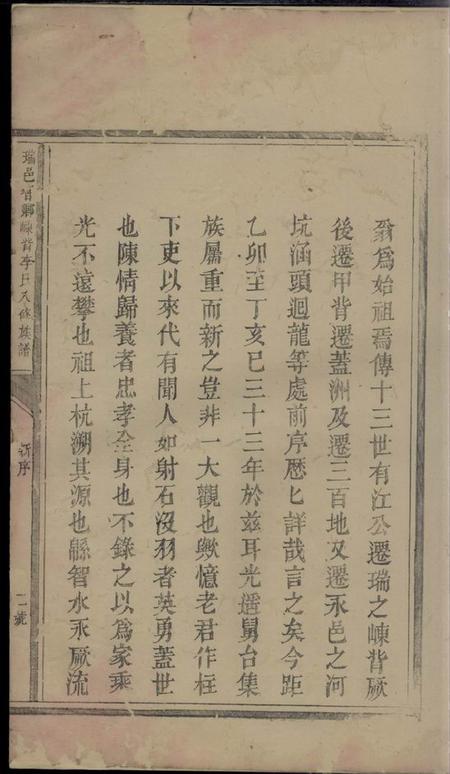 翁為始祖焉傳十三世有江公遷瑞之崠背厥
後遷甲背遷蓋洲及遷三百地又遷永邑之河
坑涵頭迴龍等處前序歷匕詳哉言之矣今距
乙卯至丁亥已三十三年於兹耳光遥舅台集
族屬重而新之豈非一大觀也歟憶老君作柱
下吏以來代有聞人如射石沒羽者英勇蓋世
也陳情歸養者忠孝全身也不錄之以為家乘
光不遠攀也祖上杭溯其源也緜智水永厥流
瑞邑智鄉崠背李氏八修族譜
新序
二號